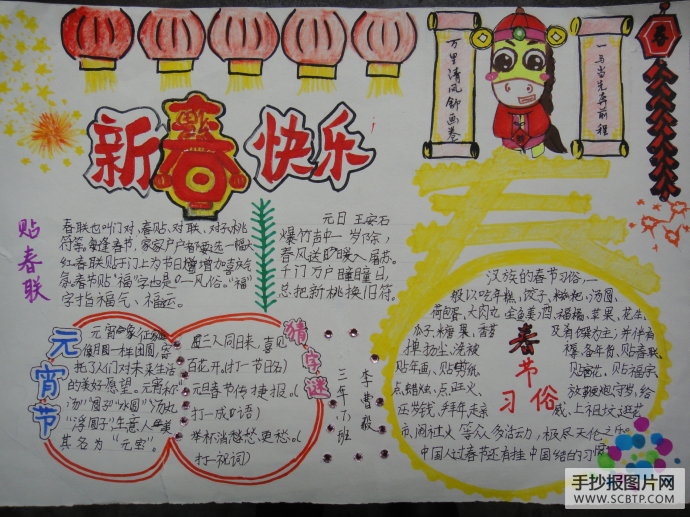 新春快乐
万里清风舒画卷
一马当先奔前程
春
贴春联
春联也叫门对、春贴、对联、对子、桃
符等,每逢春节,家家户户都要选一幅大
红春联贴于门上为节日增增加喜庆气
氛。春节贴“福”字也是 一风俗。“福”
字指福气、福运。
元日 王安石
爆竹声中一岁除,
春风送暖入屠苏。
千门万户曈曈日,
总把新桃换旧符。
元宵节
元宵象征
像月圆一样团圆,寄
托了人们对未来生活
的美好愿望。元宵称“
汤”“圆子”“水圆”“汤丸
“浮圆子”,生意人 美
其名为“元宝”。
猜字谜
三人同日来,喜见
百花开,(打一节日名)
元旦春节传捷报。(
打一成口语)
举杯消愁愁更愁。(
打一祝词)
三年(7)班
李曹毅
春节习俗
汉族的春节习俗,一
般以吃年糕、饺子、糍粑、汤圆、
荷包蛋、大肉丸、全鱼、美酒、福橘、苹果、花生、
瓜子、糖果、香茗 及肴馔为主;并伴有
掸扬尘、洗被 褥、备年货、贴春联、
贴年画、贴剪纸、 贴窗花、贴福字、
点蜡烛、点旺火、 放鞭炮、守岁、给
压岁钱、拜年、走亲 戚、上祖坟、逛花
市、闹社火等众多活动,极尽天伦之乐。
中国人过春节还有挂中国结的习惯
手抄报图片网
WWW.SCBTP.COM